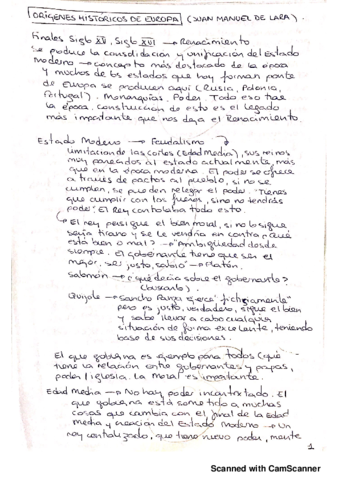 ORÍGENES HISTÓRICOS DE EUROPA (JUAN MANUEL DE LARA).
Finales Siglo XV, Siglo XVI → Renacimiento
Se produce la consolidación y unificación del Estado
moderno → concepto más destacado de la época
y muchos de los estados que hoy forman parte
de Europa se producen aquí (Rusia, Polonia,
Portugal). Monarquías. Poder. Todo eso trae
la época. Construcción de esto es el legado
más importante que nos deja el Renacimiento.
Estado Moderno → Feudalismo
Limitación de las cortes (Edad Media), sus reinos
muy parecidos al estado actualmente, más
que en la época moderna. El poder se ofrece
a través de pactos al pueblo, si no se
cumplen, se puede relegar el poder. Tienes
que cumplir con los fueros, sino no tendrás
poder. El Rey controlaba todo esto.
El rey persigue el bien moral, si no lo sigue
sería tirano y se le vendría en contra ¿Qué
está bien o mal? → Ambigüedad desde
siempre. El gobernante tiene que ser el
mejor, ser justo, sabio → Platón.
Salomón → ¿qué decía sobre el gobernante?
(buscarlo)
Quijote → Sancho Panza ejerce "fichiamente"
pero es justo, verdadero, sigue el bien
y sabe llevar a cabo cualquier
situación de forma excelente, teniendo
base de sus decisiones.
El que gobierna es ejemplo para todos (que
tiene la relación entre gobernantes y papas,
poder / iglesia. La moral es importante.
Edad Media → No hay poder incontrolado. El
que gobierna está sometido a muchas
cosas que cambia con el final de la Edad
Media y creación del Estado Moderno → Un
rey controlado, que tiene nuevo poder, mente
1
Scanned with CamScanner